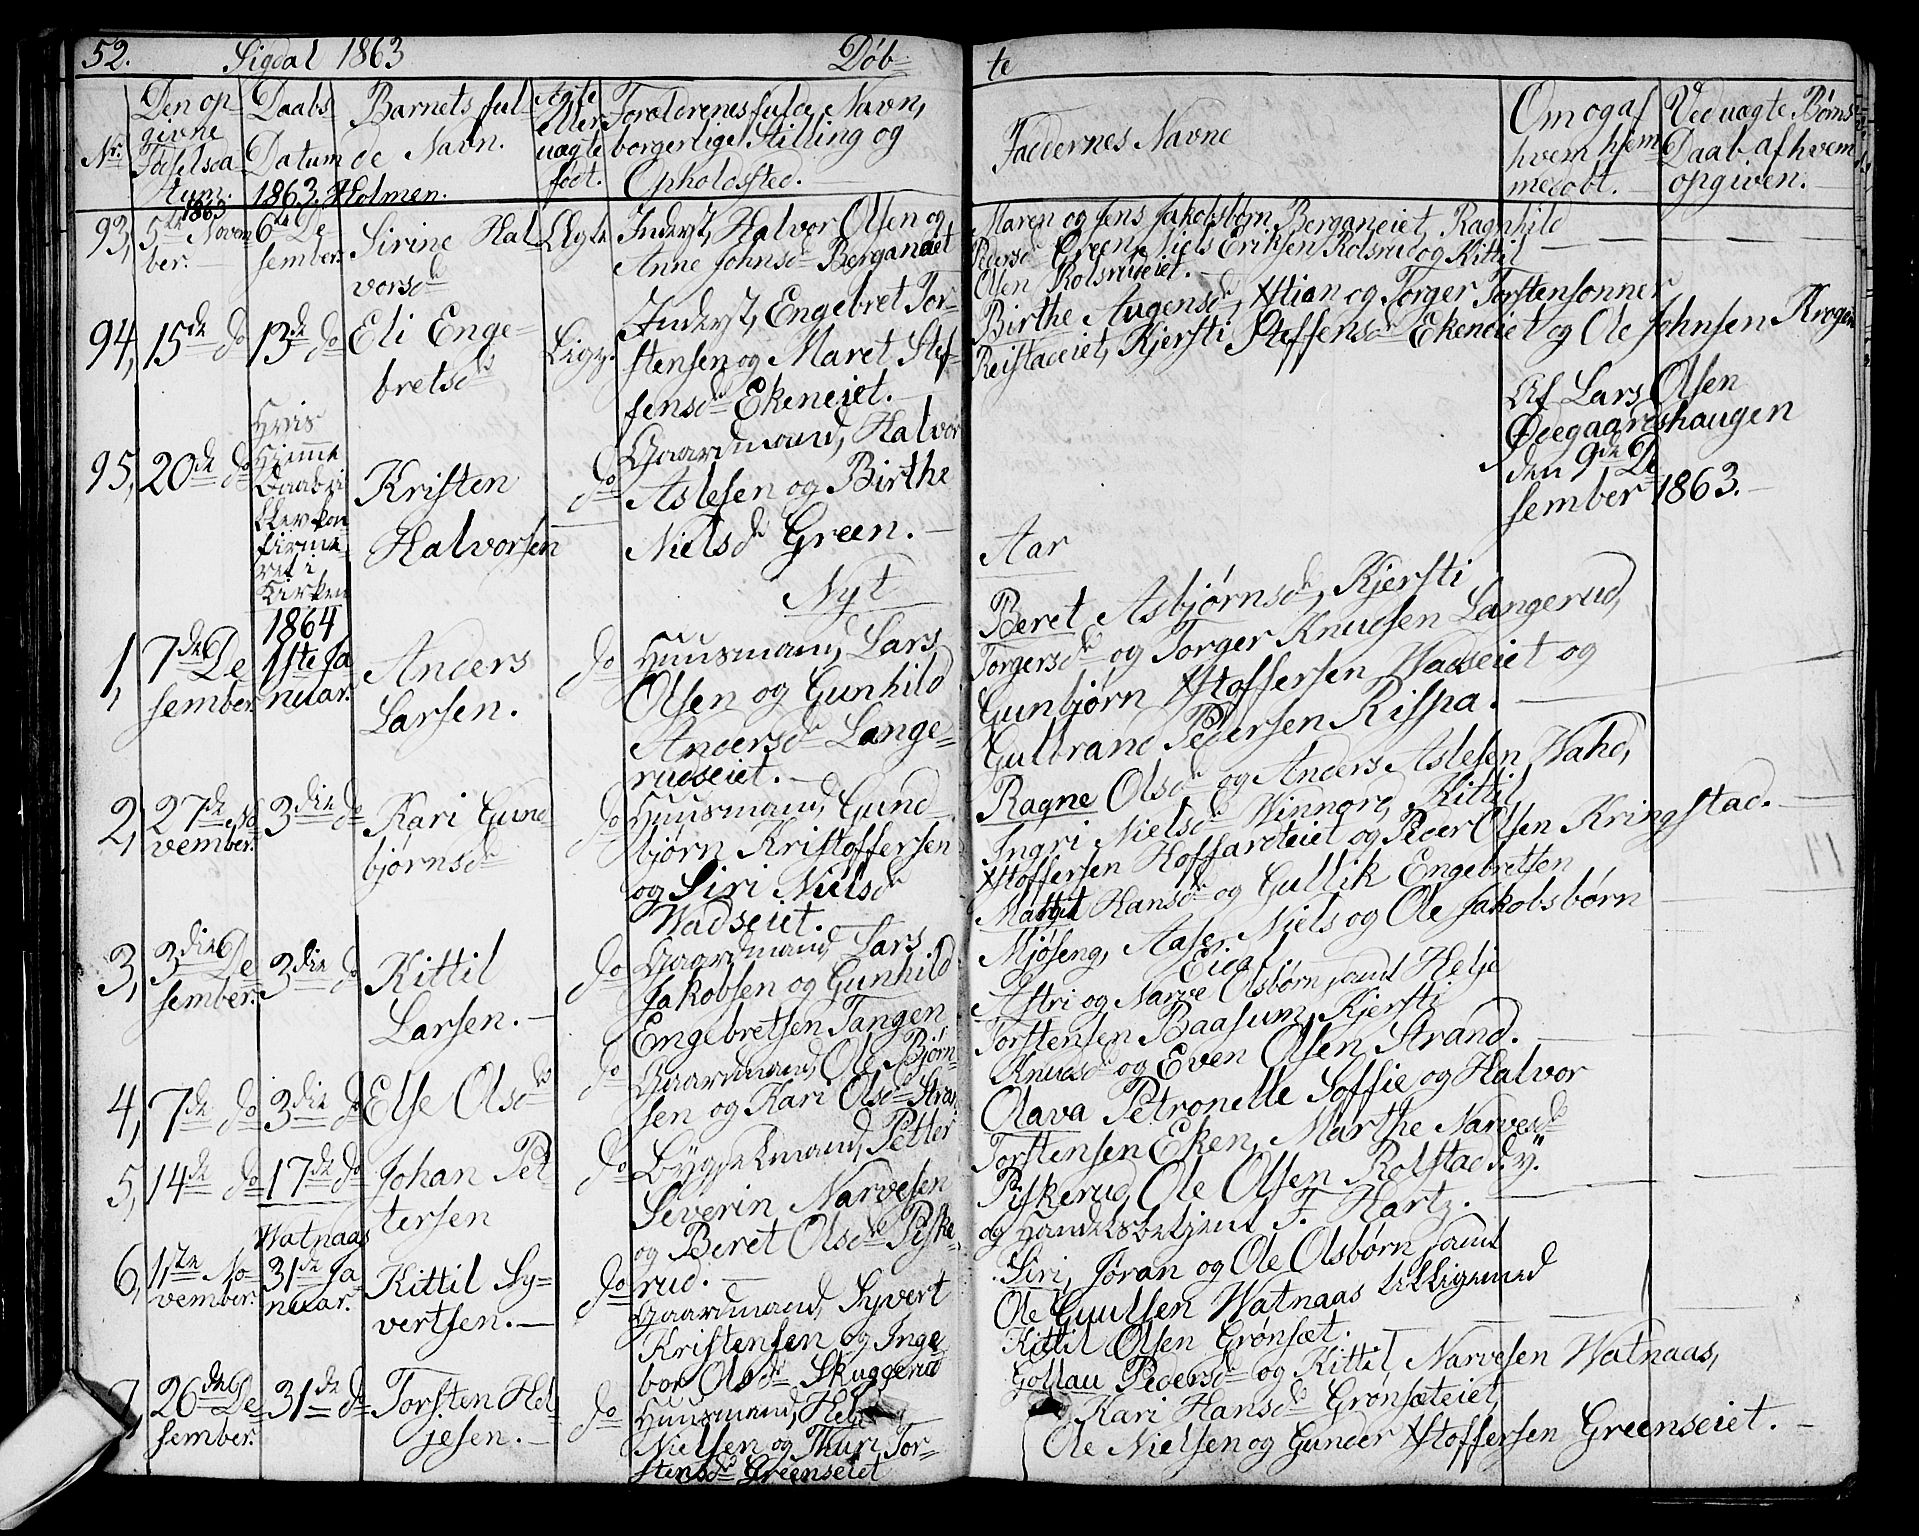 52. Sigdal 1863 Døb-
te
Nr.
Den op-
givne
Fødselsda
tum.
1863
Daabs
Datum
1863.
Barnets ful-
de Navn.
Holmen.
Ægte
eller
uægte
født.
Forældrenes fulde Navn,
borgerlige Stilling og
Opholdssted.
Faddernes Navne
Om og af
hvem hjem
medøbt.
Ved uægte Børns
Daab af hvem
opgiven.
93, 5te Novem
ber.
6te De
sember.
Sirine Hal
vorsd.
Ægte
Inderst, Halvor Olsen og
Anne Johnsd. Berganeiet
Maren og Jens Jakobsbørn Berganeiet, Ragnhild
Pedersd. Green, Niels Eriksen Rolsrud og Kittil
Olsen Rolsrudeiet.
94, 15de do
13de do
Eli Enge-
bretsd.
Inderst, Engebret Tor-
stensen og Maret Stef-
fensd. Ekeneiet.
Birthe Augensd., Xstian og Torger Torstensønner
Reistadeiet, Kjersti Steffensd. Ekeneiet og Ole Johnsen Krogen
95, 20de do
Kirken
Kristen
Halvorsen
do
Gaardmand, Halvor
Aslesen og Birthe
Nielsd. Green.
Af Lars Olsen
Ødegaardshaugen
den 9de De
sember 1863.
Nyt
Aar
1864
1, 7de De
sember.
1ste Ja
nuar.
Anders
Larsen.
do
Huusmand, Lars
Olsen og Gunhild
Andersd. Lange-
rudseiet.
Beret Asbjørnsd., Kjersti
Torgersd. og Torger Knudsen Langerud,
Gunbjørn Xstoffersen Wadseiet og
Gulbrand Pedersen Rispa.
2, 27de No
vember.
3die do
Kari Gund-
bjørnsd.
do
Huusmand, Gund-
bjørn Kristoffersen
og Siri Nielsd.
Wadseiet.
Ragne Olsd. og Anders Aslesen Wahd,
Ingri Nielsd. Winnord, Kittil
Xstoffersen Hoffarteiet og Peder Olsen Kringstad.
3, 3die De
sember.
3die do
Kittil
Larsen.
do
Gaardmand, Lars
Jakobsen og Gunhild
Engebretsen Tangen
Margit Hansd. og Gullik Engebretsen
Mjøseng, Aase, Niels og Ole Jakobsbørn
Eidal
4, 7de do
3die do
Else Olsd.
do
Gaardmand, Ole Bjørn-
sen og Kari Olsd. Stran
Astri og Narve Olsbørn samt Helje
Torstensen Baasum, Kjersti
Knudsd. og Even Olsen Strand.
5, 14de do
17de do
Johan Pet
tersen
do
Bygselmand, Petter
Severin Narvesen
og Beret Olsd. Piske-
rud.
Olava Petronelle Soffie og Halvor
Torstensen Eken, Marthe Narvesd.
Piskerud, Ole Olsen Rolstad d. y.
og Handelsbetjent F. Hartz.
Watnaas
6, 1te No-
vember.
31de Ja
nuar.
Kittil Sy-
vertsen.
do
Gaardmand, Syvert
Kristensen og Inge
bor Olsd. Skuggerud
Siri, Jøran og Ole Olsbørn samt
Ole Guulsen Watnaas tilligemed
Kittil Olsen Grønsæt.
7, 26de De
sember.
31de do
Torsten Hel-
jesen.
do
Huusmand,
Nielsen og Thuri Tor-
stensd. Greenseiet
Gollau Pedersd. og Kittil Narvesen Watnaas,
Kari Hansd. Grønsæteiet,
Ole Nielsen og Gunder Xstoffersen Greenseiet.